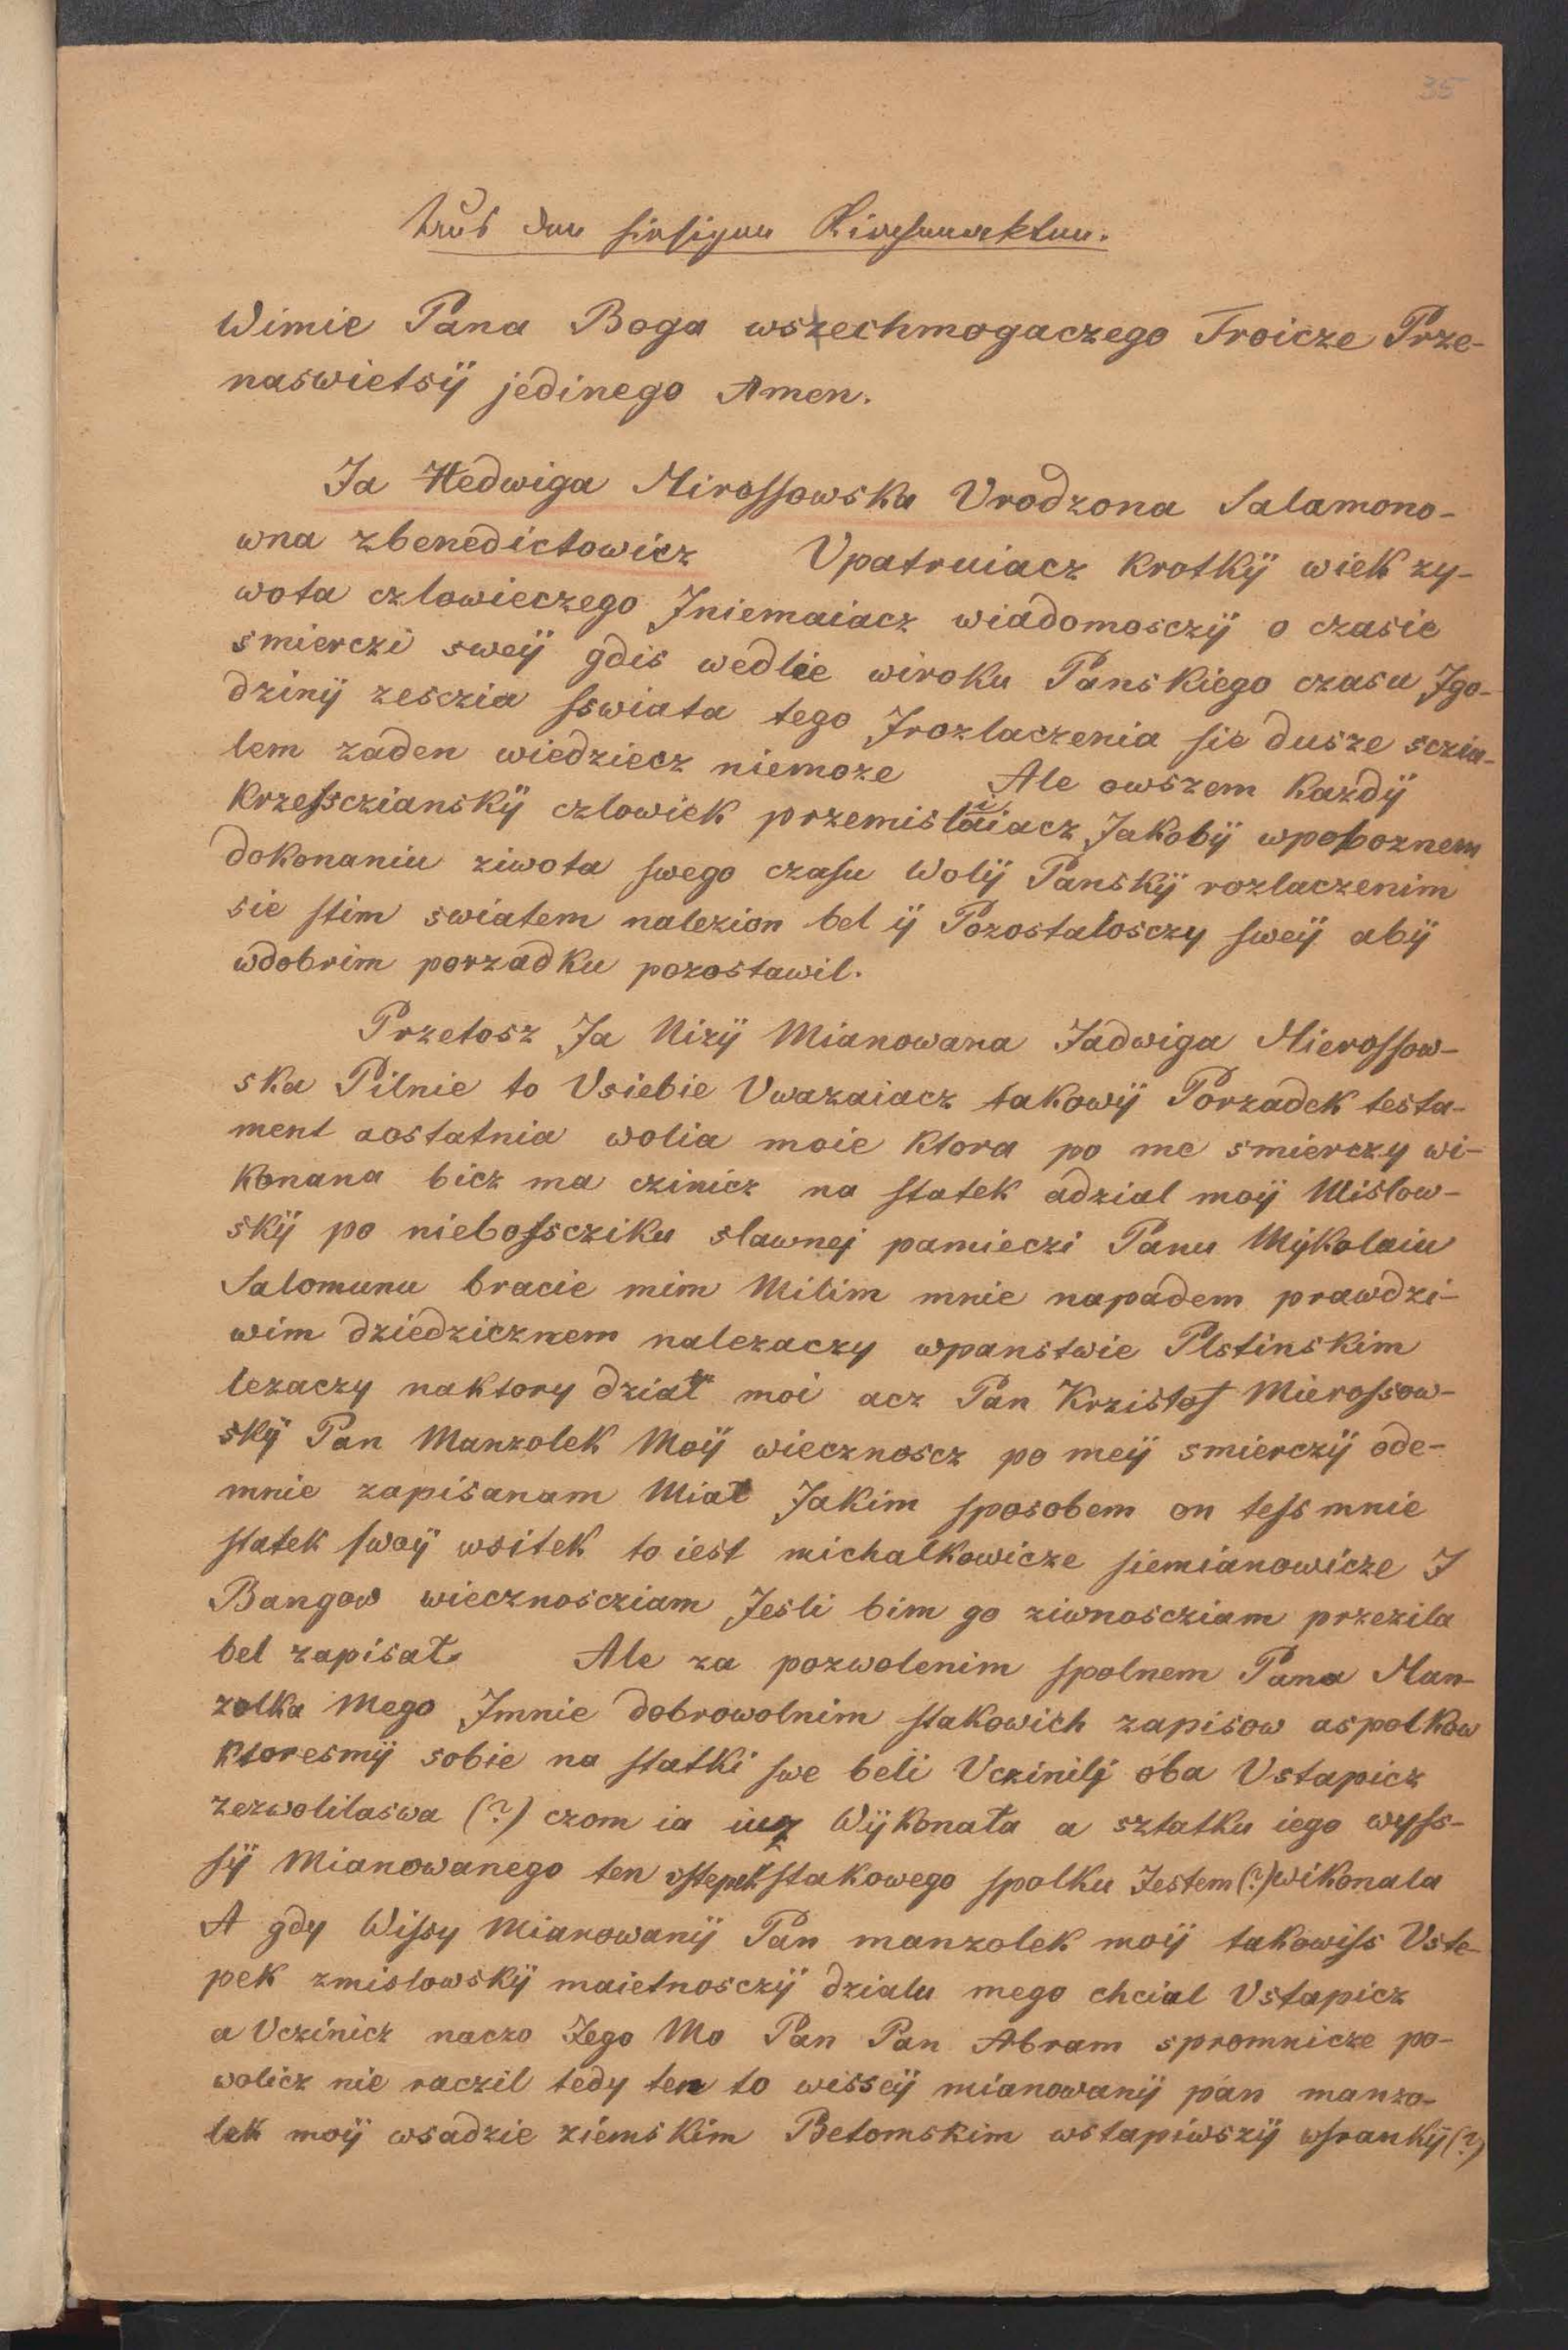 35
Aus den hiesigen Kirchenakten.
Wimie Pana Boga wszechmogaczego Troicze Prze-
naswietsÿ jedinego Amen.
Ja Hedwiga Mirossowska Vrodzona Salamono-
wna zbenedictowicz Vpatruiacz krotkÿ wiek zy-
wota czlowieczego Jniemaiacz wiadomosczÿ o czasie
smierczi sweÿ gdis wedlie wiroku Panskiego czasu Jgo-
dzinÿ zesczia sswiata tego Jrozlaczenia sie dusze sczia-
lem zaden wiedziecz niemoze Ale owszem kazdÿ
krzessczianskÿ czlowiek przemislaiacz Jakobÿ wpoboznem
dokonaniu ziwota swego czasu Wolÿ Panskÿ rozlaczenim
sie stim swiatem nalezion bel ÿ Pozostalosczy sweÿ abÿ
wdobrim porzadku pozostawil.
Przetosz Ja Nizÿ Mianowana Jadwiga Mierossow-
ska Pilnie to Vsiebie Vwazaiacz takowÿ Porzadek testa-
ment aostatnia wolia moie ktora po me smierczy wi-
konana bicz ma czinicz na statek adzial moÿ Mislow-
skÿ po niebosscziku slawnej pamieczi Panu Mÿkolaiu
Salomunu bracie mim Milim mnie napadem prawdzi-
wim dziedzicznem nalezaczy wpanstwie Plstinskim
lezaczy naktory dział moi acz Pan Krzistof Mierossow-
skÿ Pan Manzolek Moÿ wiecznoscz po meÿ smierczÿ ode-
mnie zapisanam Miał Jakim sposobem on tess mnie
statek swoÿ wsitek to iest michalkowicze siemianowicze J
Bangow wiecznoscziam Jesli bim go ziwnoscziam przezila
bel zapisał. Ale za pozwolenim spolnem Pana Man-
zolka Mego Jmnie dobrowolnim stakowich zapisow aspolkow
ktoresmÿ sobie na statki swe beli Vczinilÿ oba Vstapicz
zezwolilaswa (?) czom ia iuz Wÿkonała a sztatku iego wyss-
sÿ Mianowanego ten vstepek stakowego spolku Jestem (?) wikonala
A gdy Wissy Mianowanÿ Pan manzolek moÿ takowiss Vste-
pek zmislowskÿ maietnosczÿ dzialu mego chcial Vstapicz
a Vczinicz naczo Jego Mo Pan Pan Abram spromnicze po-
wolicz nie raczil tedy ten to wisseÿ mianowanÿ pan manzo-
lek moÿ wsadzie ziemskim Betomskim wstapiwszÿ wsrankÿ (?)